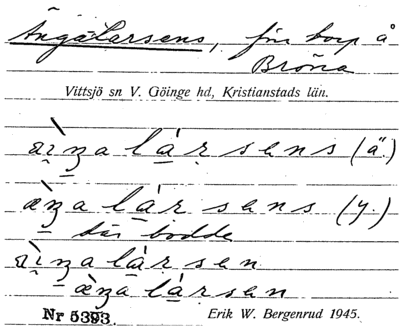 Ängalarsens, för torp å
Bröna
Vittsjö sn V. Göinge hd, Kristianstads län.
æ̀i̯ŋa lársens (ä.)
æ̀ŋa lársens (y.)
där bodde
æ̀i̯ŋa lársen
æ̀ŋa lársen
Nr 5393. Erik W. Bergenrud 1945.